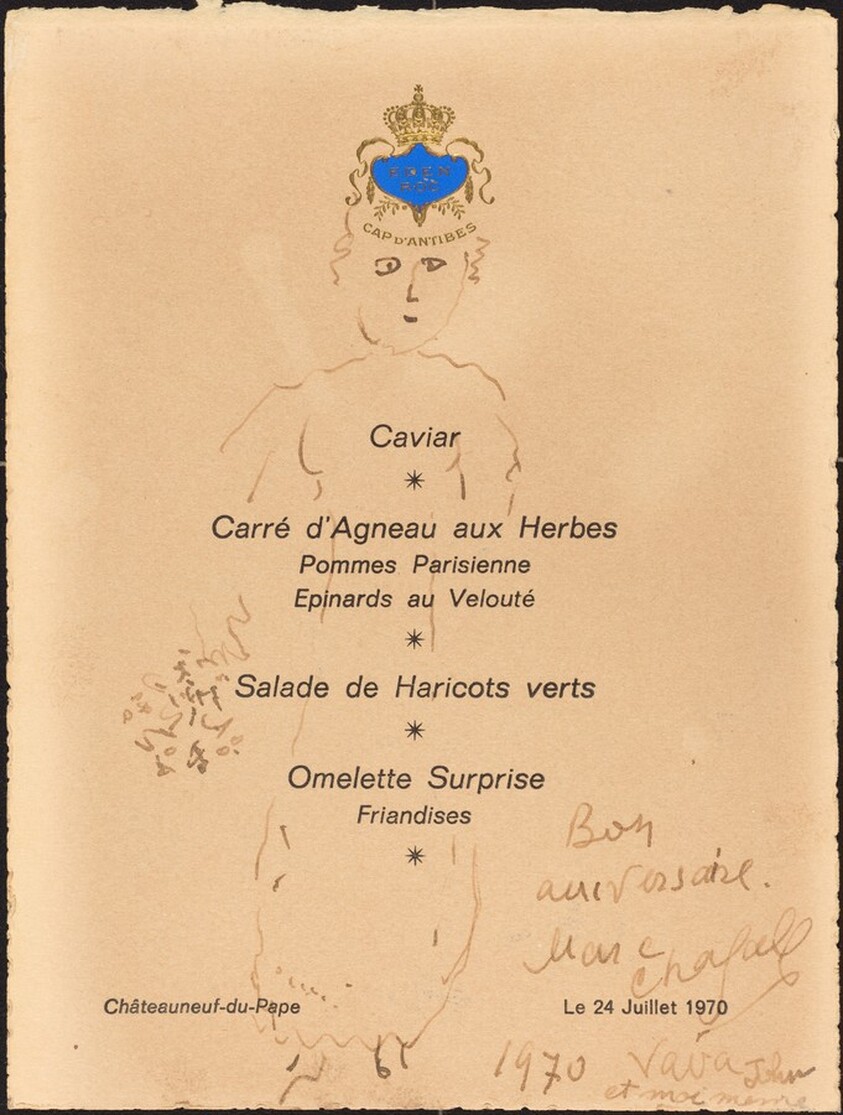 EDEN
ROC
CAP D'ANTIBES
Caviar
Carré d'Agneau aux Herbes
Pommes Parisienne
Epinards au Velouté
Salade de Haricots verts
Omelette Surprise
Friandises
Bon
anniversaire.
Marc
Chagall
Châteauneuf-du-Pape
Le 24 Juillet 1970
1970 Vava John
et moi même